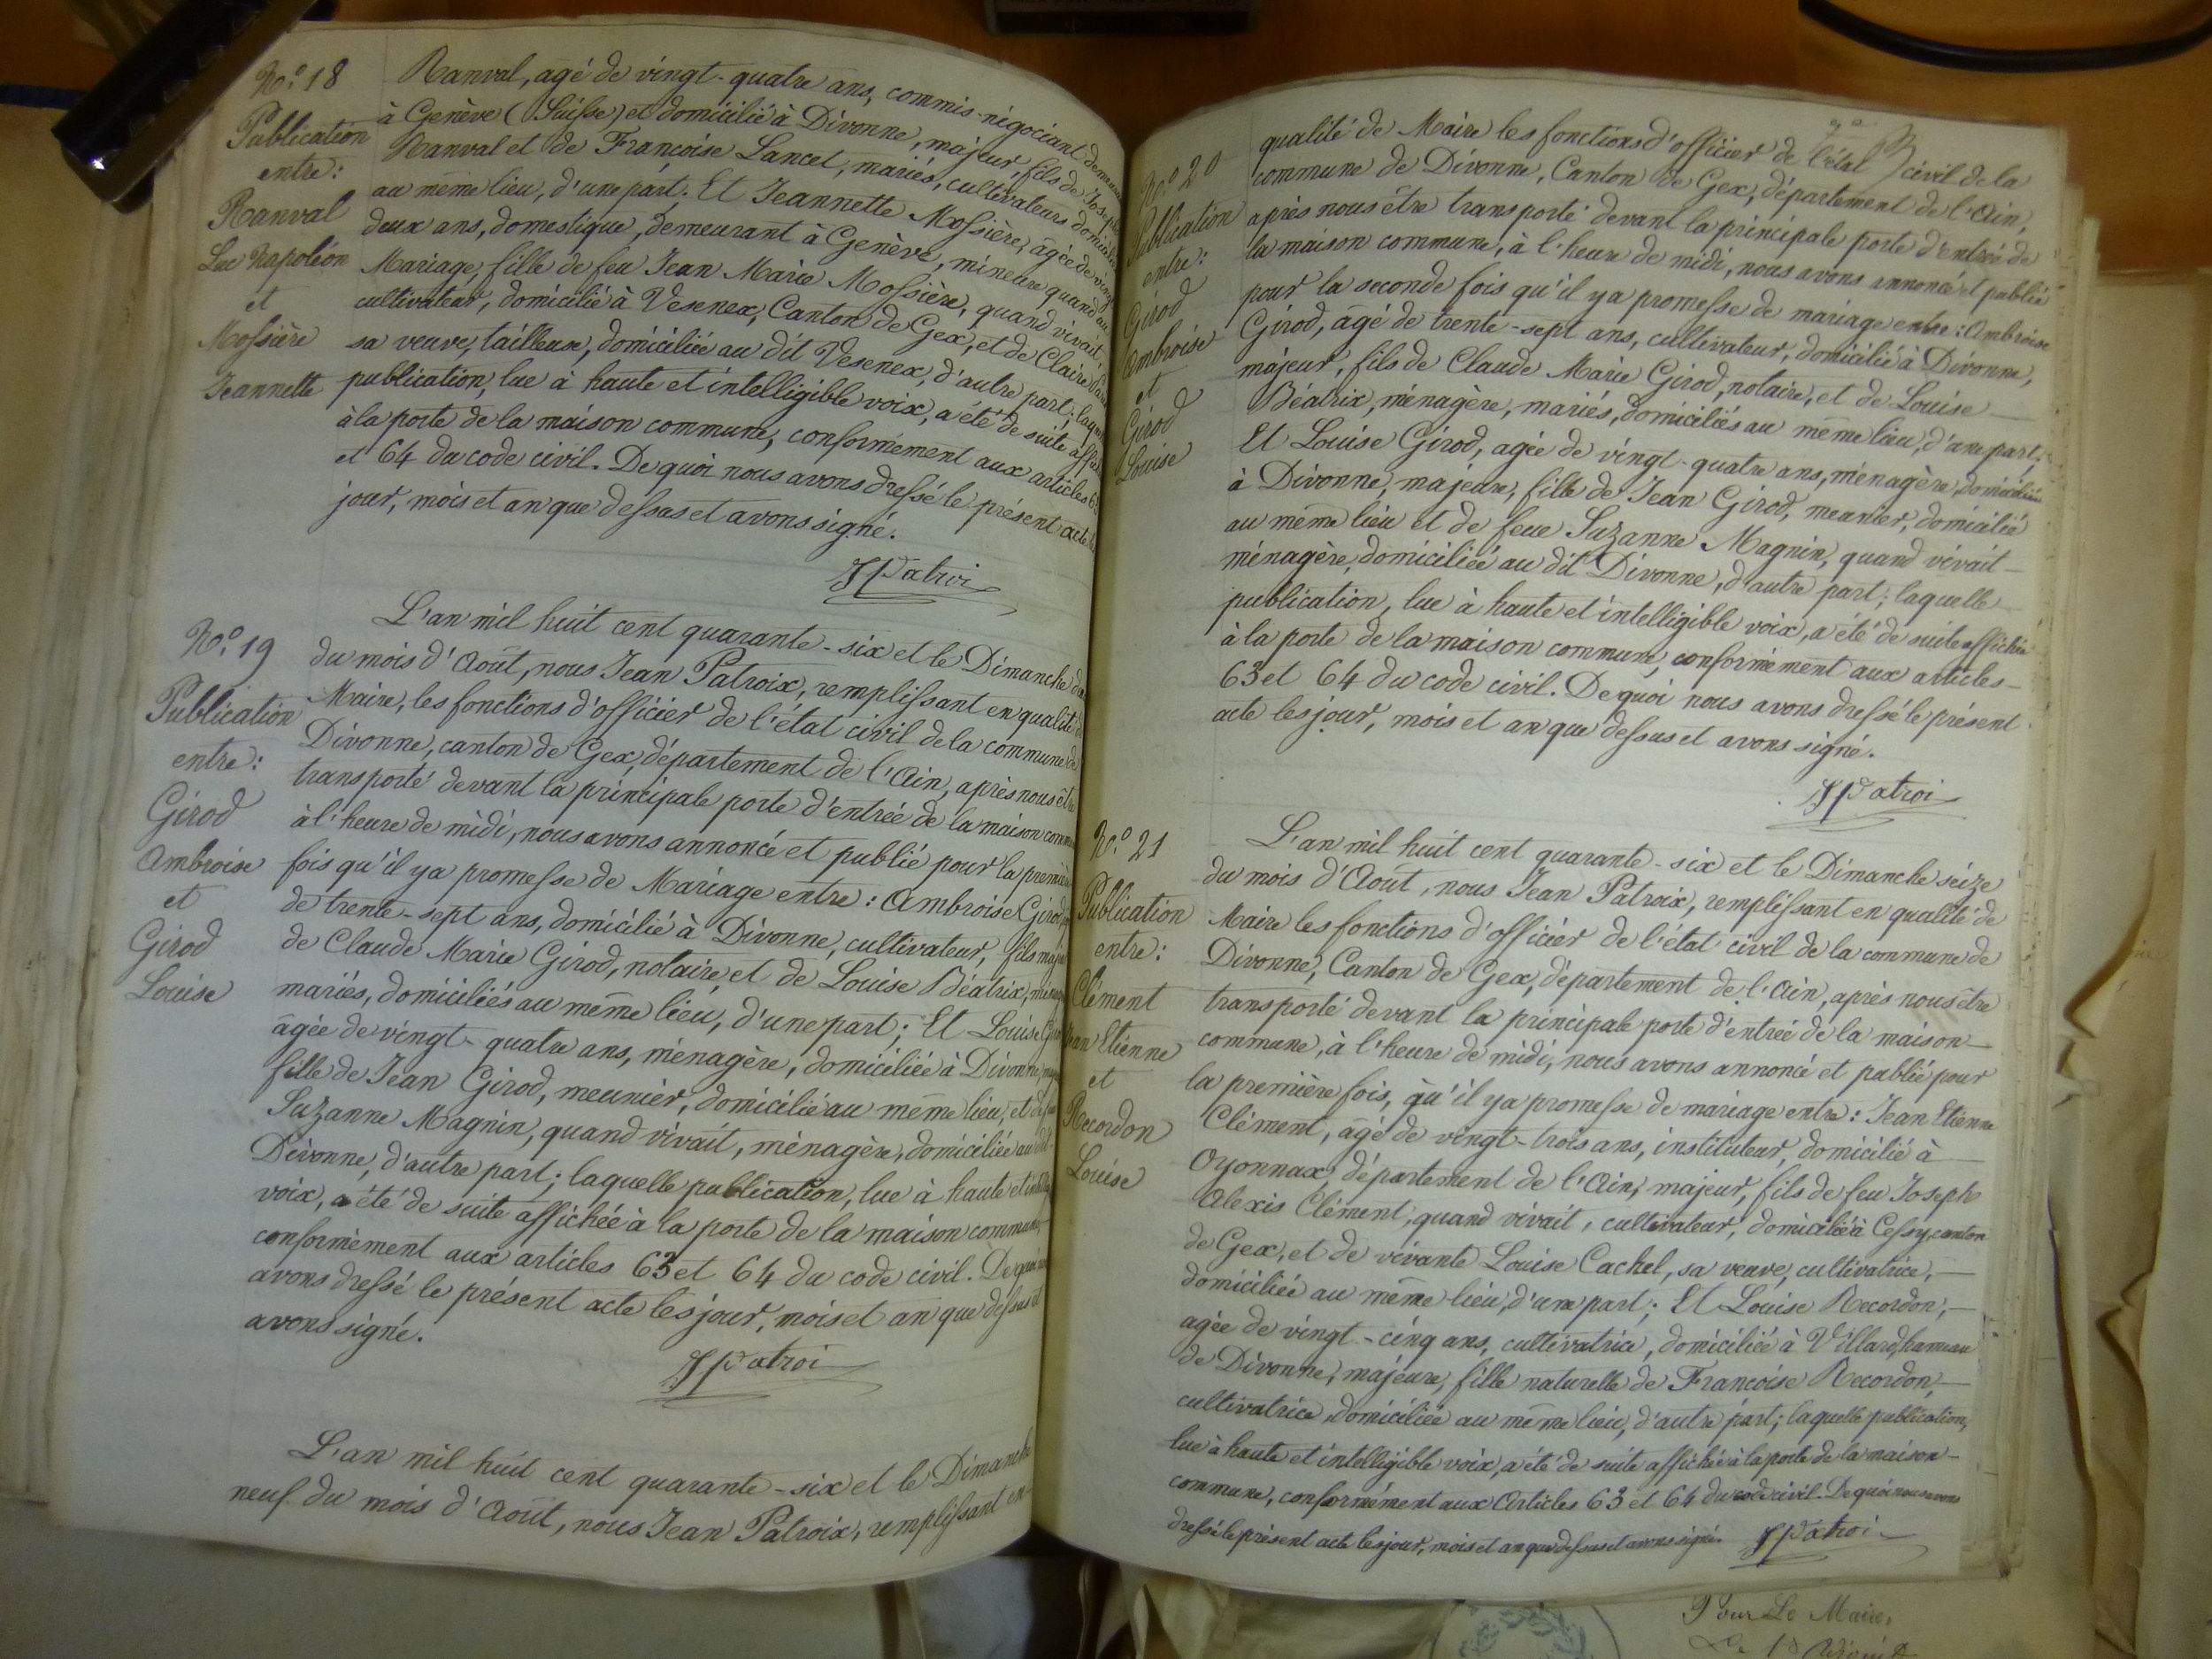 N.º 18
Publication
entre :
Ranval
Luc Napoléon
et
Mossière
Jeannette
Ranval, agé de vingt-quatre ans, commis-négociant
à Genève (Suisse) et domicilié à Divonne, majeur, fils de Joseph
Ranval et de Françoise Lancet, mariés, cultivateurs
au même lieu, d'une part. Et Jeannette Mossière, agée de
deux ans, domestique, demeurant à Genève, mineure quand au
Mariage, fille de feu Jean Marie Mossière, quand vivait,
cultivateur, domicilié à Vesenex, Canton de Gex, et de Claire
sa veuve, tailleuse, domiciliée au dit Vesenex, d'autre part;
publication, lue à haute et intelligible voix, a été de suite
à la porte de la maison commune, conformément aux articles
et 64 du code civil. De quoi nous avons dressé le présent acte
jour, mois et an que dessus et avons signé.
JPatroi
N.º 19
Publication
entre :
Girod
Ambroise
et
Girod
Louise
L'an mil huit cent quarante-six et le Dimanche
du mois d'Août, nous Jean Patroix, remplissant en qualité
Maire, les fonctions d'officier de l'état civil de la commune de
Divonne, canton de Gex, département de l'Ain, après nous
transporté devant la principale porte d'entrée de la maison
à l'heure de midi, nous avons annoncé et publié pour la
fois qu'il y a promesse de Mariage entre : Ambroise Girod,
de trente-sept ans, domicilié à Divonne, cultivateur, fils
de Claude Marie Girod, notaire, et de Louise Béatrix,
mariés, domiciliés au même lieu, d'une part; Et Louise
âgée de vingt-quatre ans, ménagère, domiciliée à Divonne,
fille de Jean Girod, meunier, domicilié au même lieu, et de
Suzanne Magnin, quand vivait, ménagère, domiciliée au
Divonne, d'autre part; laquelle publication, lue à haute et
voix, a été de suite affichée à la porte de la maison
conformément aux articles 63 et 64 du code civil. De quoi
avons dressé le présent acte les jour, mois et an que dessus et
avons signé.
JPatroi
L'an mil huit cent quarante-six et le Dimanche
neuf du mois d'Août, nous Jean Patroix, remplissant en
N.º 20
Publication
entre :
Girod
Ambroise
et
Girod
Louise
qualité de Maire les fonctions d'officier de l'état civil de la
commune de Divonne, Canton de Gex, département de l'Ain,
après nous être transporté devant la principale porte d'entrée de
la maison commune, à l'heure de midi, nous avons annoncé et publié
pour la seconde fois qu'il y a promesse de mariage entre : Ambroise
Girod, âgé de trente-sept ans, cultivateur, domicilié à Divonne,
majeur, fils de Claude Marie Girod, notaire, et de Louise
Béatrix, ménagère, mariés, domiciliés au même lieu, d'une part;
Et Louise Girod, agée de vingt-quatre ans, ménagère, domiciliée
à Divonne, majeure, fille de Jean Girod, meunier, domicilié
au même lieu et de feue Suzanne Magnin, quand vivait
ménagère, domiciliée au dit Divonne, d'autre part; laquelle
publication, lue à haute et intelligible voix, a été de suite affichée
à la porte de la maison commune, conformément aux articles
63 et 64 du code civil. De quoi nous avons dressé le présent
acte les jour, mois et an que dessus et avons signé.
JPatroi
N.º 21
Publication
entre :
Clément
Jean Etienne
et
Recordon
Louise
L'an mil huit cent quarante-six et le Dimanche seize
du mois d'Août, nous Jean Patroix, remplissant en qualité de
Maire les fonctions d'officier de l'état civil de la commune de
Divonne, Canton de Gex, département de l'Ain, après nous être
transporté devant la principale porte d'entrée de la maison
commune, à l'heure de midi, nous avons annoncé et publié pour
la première fois, qu'il y a promesse de mariage entre : Jean Etienne
Clément, âgé de vingt-trois ans, instituteur, domicilié à
Oyonnax, département de l'Ain, majeur, fils de feu Joseph
Alexis Clément, quand vivait, cultivateur, domicilié à Cessy, canton
de Gex, et de vivante Louise Cachel, sa veuve, cultivatrice,
domiciliée au même lieu, d'une part; Et Louise Recordon,
agée de vingt-cinq ans, cultivatrice, domiciliée à Villard, hameau
de Divonne, majeure, fille naturelle de Françoise Recordon,
cultivatrice, domiciliée au même lieu, d'autre part; laquelle publication,
lue à haute et intelligible voix, a été de suite affichée à la porte de la maison
commune, conformément aux Articles 63 et 64 du code civil. De quoi nous avons
dressé le présent acte les jour, mois et an que dessus et avons signé. JPatroi
Pour Le Maire,